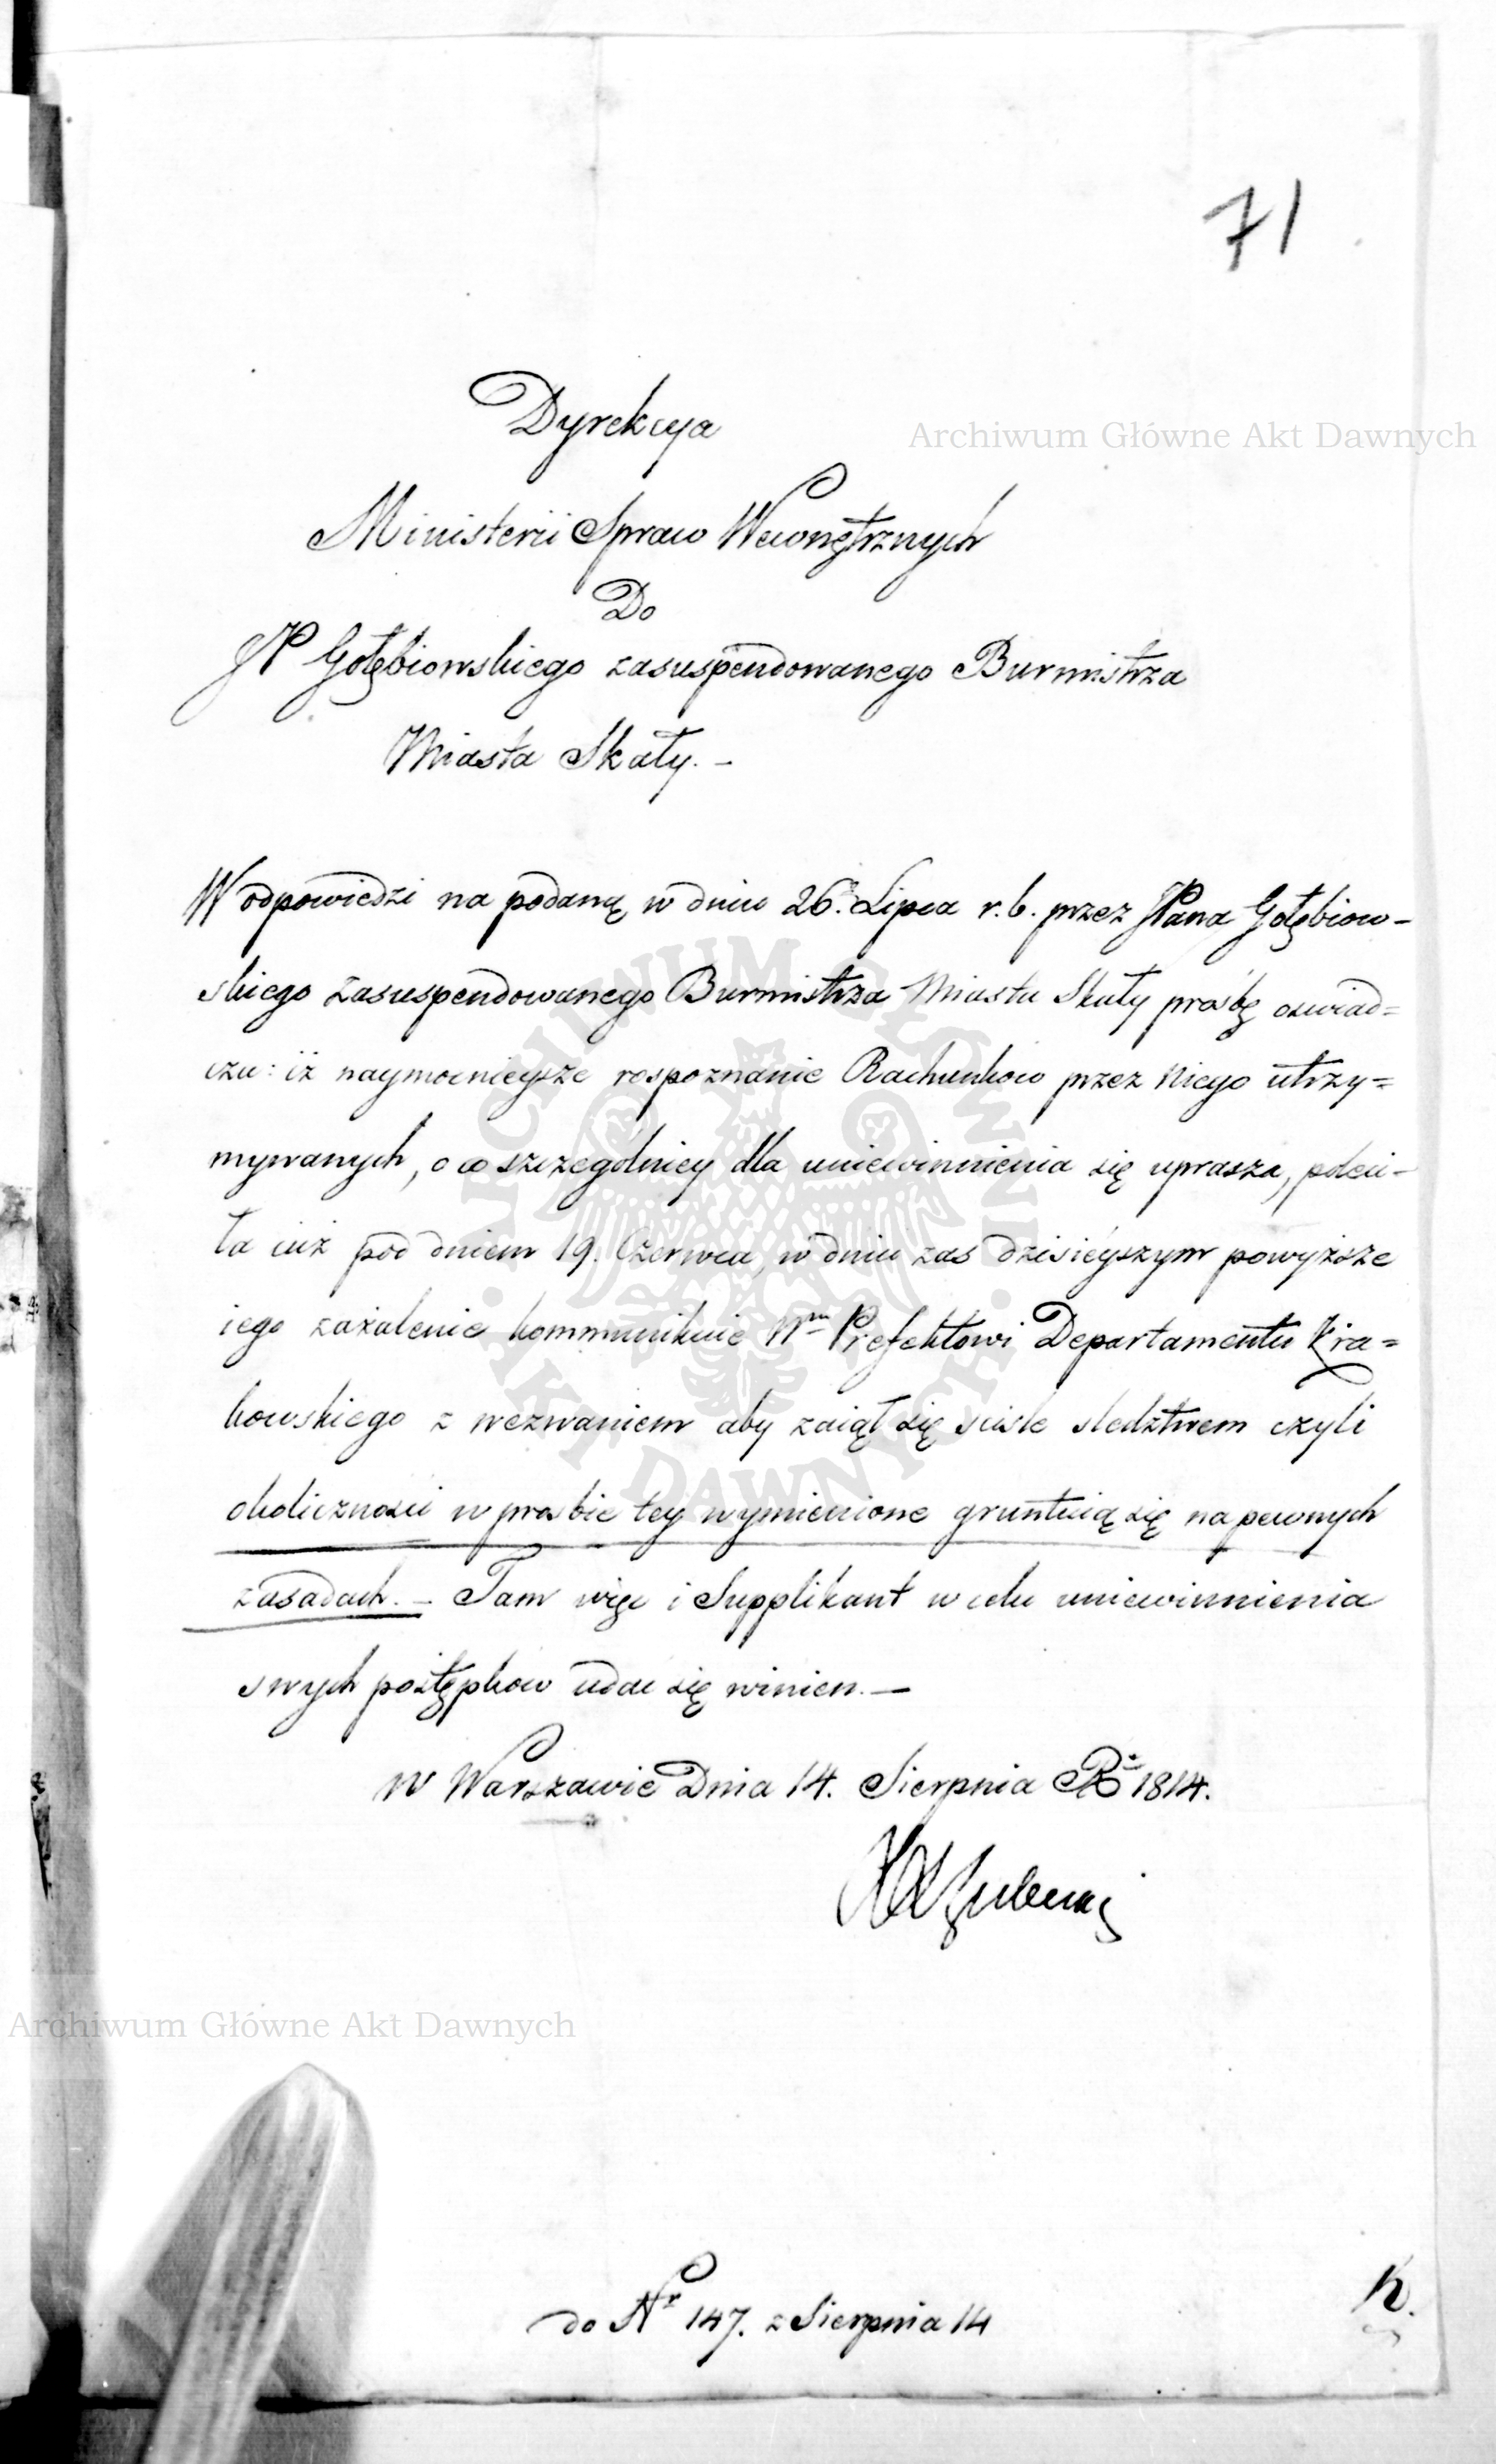 71
Dyrekcya
Archiwum Główne Akt Dawnych
Ministerii Spraw Wewnętrznych
Do
JP Gołębiowskiego zasuspendowanego Burmistrza
Miasta Skały. –
W odpowiedzi na podaną w dniu 26. Lipca r. b. przez JPana Gołębiow-
skiego zasuspendowanego Burmistrza Miasta Skały prośbę oswiad=
cza: iż naymocnieysze rospoznanie Rachunkow przez Niego utrzy=
mywanych, o co szczegolniey dla uniewinnienia się uprasza, poleci-
ła iuż pod dniem 19. Czerwca, w dniu zas dzisieyszym powyższe
iego zażalenie kommunikuie Wmu Prefektowi Departamentu Kra=
kowskiego z wezwaniem aby zaiął się scisle sledztwem czyli
okolicznosci w prosbie tey wymienione gruntuią się na pewnych
zasadach. – Tam więc i Supplikant w celu uniewinnienia
swych postępkow udac się winien. –
w Warszawie Dnia 14. Sierpnia Ro 1814.
Archiwum Główne Akt Dawnych
do Nr 147. z Sierpnia 14
K.
ARCHIWUM GŁÓWNE · AKT DAWNYCH ·